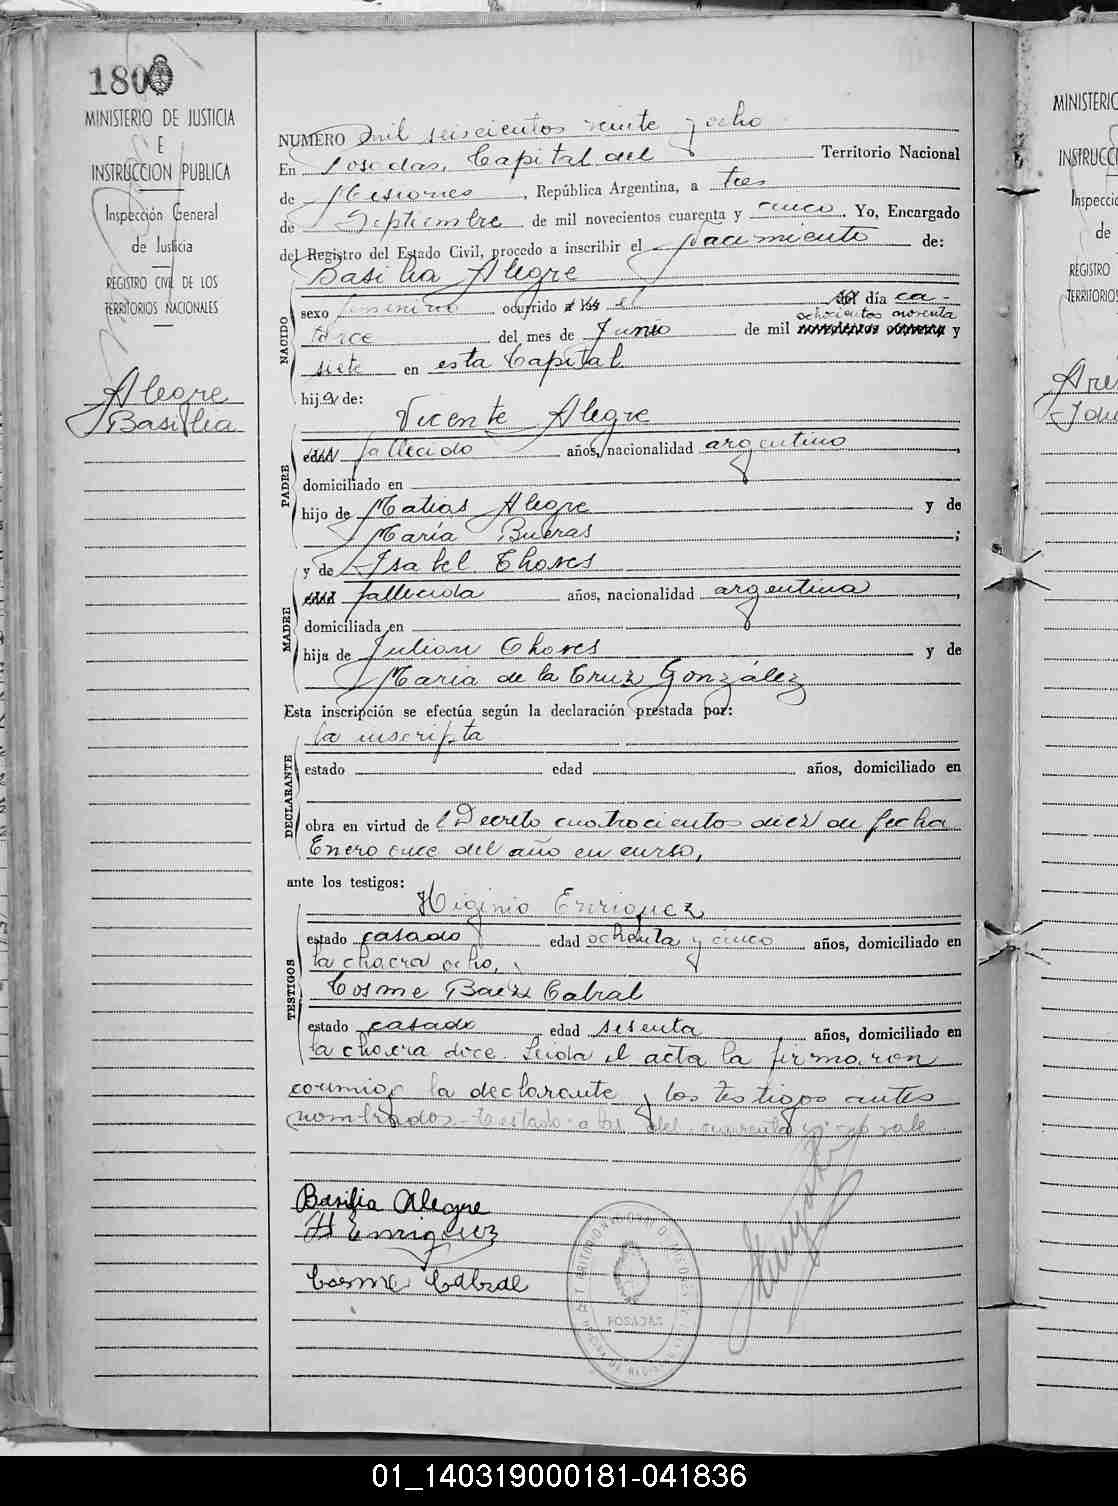 180
MINISTERIO DE JUSTICIA
E
INSTRUCCION PUBLICA
Inspección General
de Justicia
REGISTRO CIVIL DE LOS
TERRITORIOS NACIONALES
Alegre
Basilia
NUMERO Mil seiscientos veinte y ocho
En Posadas, Capital del Territorio Nacional
de Misiones, República Argentina, a tres
de Septiembre de mil novecientos cuarenta y cinco. Yo, Encargado
del Registro del Estado Civil, procedo a inscribir el Nacimiento de:
Basilia Alegre
NACIDO
sexo femenino ocurrido a las el del día ca-
ochocientos noventa
torce del mes de Junio de mil novecientos cuarenta y
siete en esta Capital
hija de:
Vicente Alegre
PADRE
edad fallecido años, nacionalidad argentino,
domiciliado en
hijo de Matias Alegre y de
María Bueras;
y de Isabel Chaves
MADRE
edad fallecida años, nacionalidad argentina,
domiciliada en
hija de Julian Chaves y de
Maria de la Cruz González
Esta inscripción se efectúa según la declaración prestada por:
la inscripta
DECLARANTE
estado edad años, domiciliado en
obra en virtud de Decreto cuatrocientos diez de fecha
Enero once del año en curso,
ante los testigos:
Higinio Enriquez
TESTIGOS
estado casado edad ochenta y cinco años, domiciliado en
la chacra ocho,
Cosme Baez Cabral
estado casado edad sesenta años, domiciliado en
la chacra doce. Leida el acta la firmaron
conmigo la declarante y los testigos antes
nombrados. Testado: a las del cuarenta y no vale
Basilia Alegre
H Enriquez
Cosme Cabral
POSADAS
MINISTERIO
INSTRUCC
Inspecció
de
REGISTRO
TERRITORIOS
01_140319000181-041836